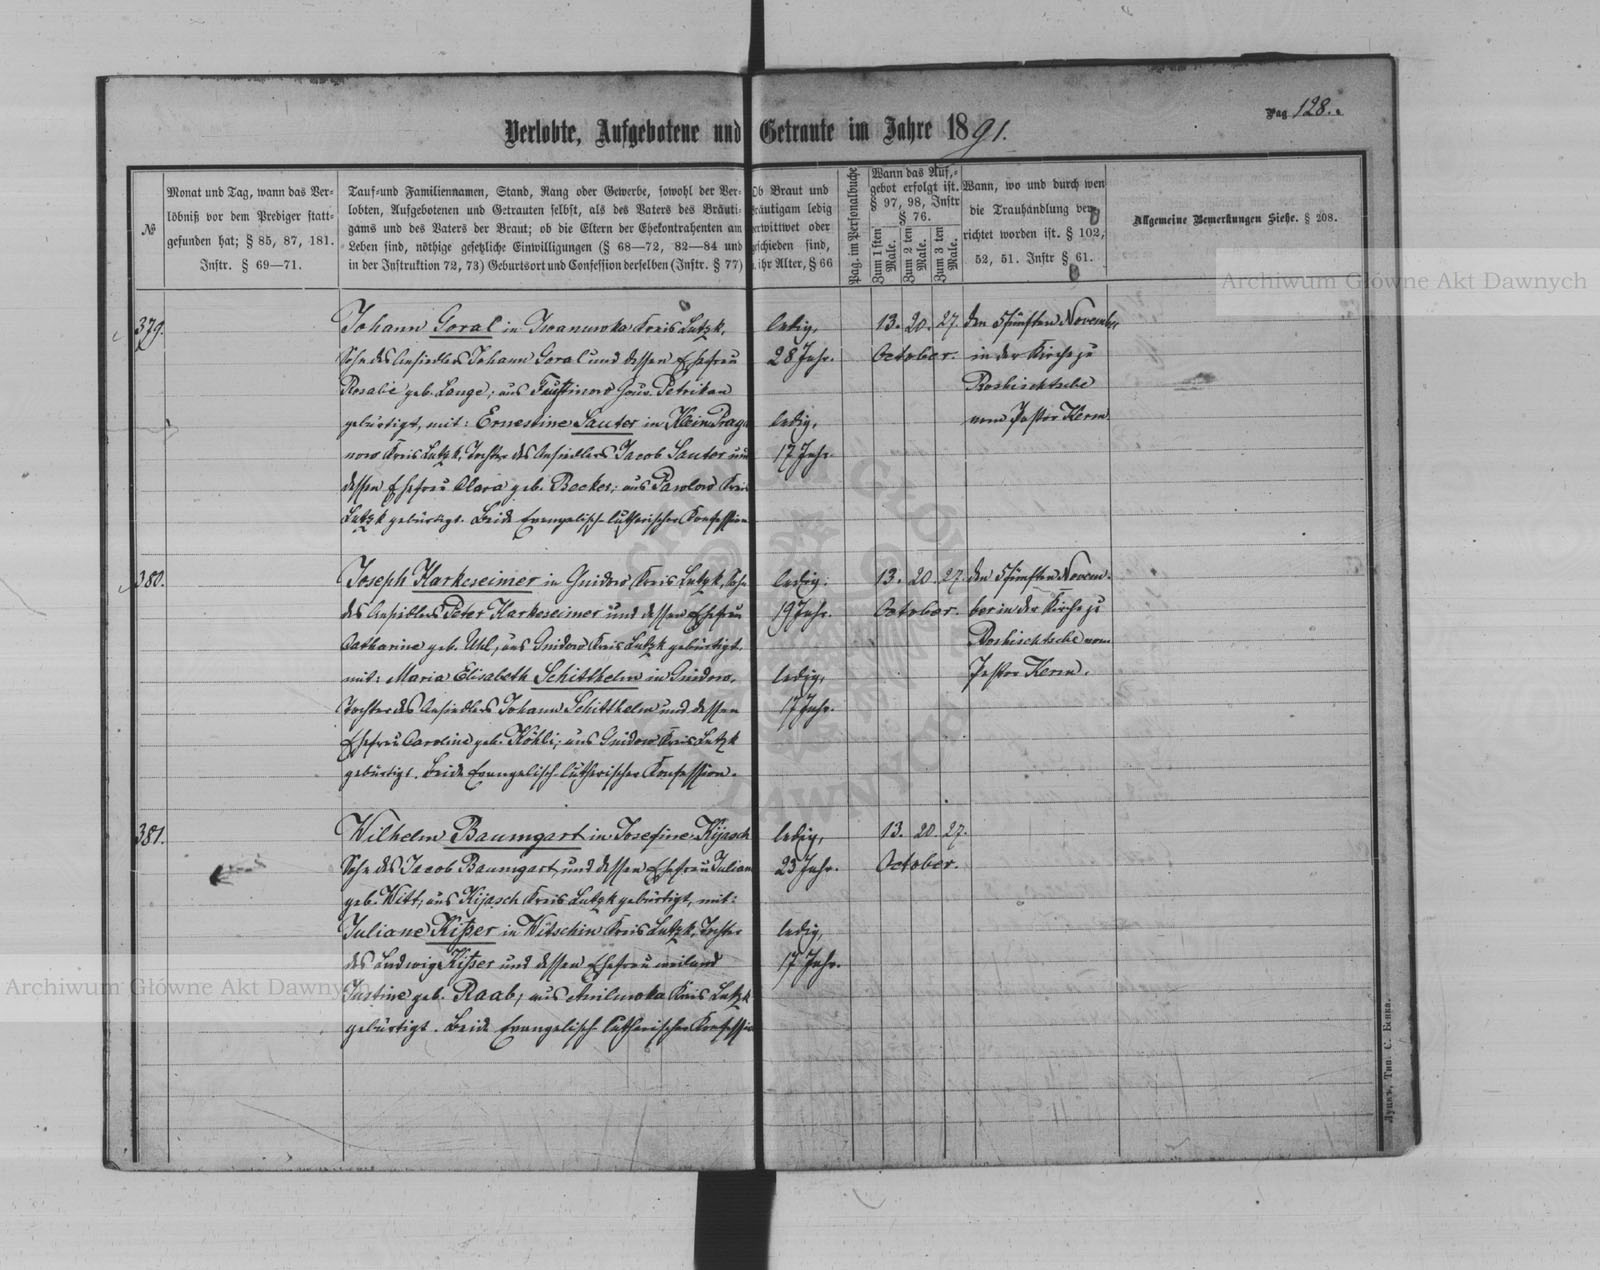 Pag 128.
Verlobte, Aufgebotene und Getraute im Jahre 1891.
№
Monat und Tag, wann das Ver-
löbniß vor dem Prediger statt-
gefunden hat; § 85, 87, 181.
Instr. § 69—71.
Tauf- und Familiennamen, Stand, Rang oder Gewerbe, sowohl der Ver-
lobten, Aufgebotenen und Getrauten selbst, als des Vaters des Bräuti-
gams und des Vaters der Braut; ob die Eltern der Ehekontrahenten am
Leben sind, nöthige gesetzliche Einwilligungen (§ 68—72, 82—84 und
in der Instruktion 72, 73) Geburtsort und Confession derselben (Instr. § 77)
Ob Braut und
Bräutigam ledig
verwittwet oder
geschieden sind,
ihr Alter, § 66
Pag. im Personalbuche
Wann das Auf-
gebot erfolgt ist.
§ 97, 98, Instr
§ 76.
Zum 1 sten Male.
Zum 2 ten Male.
Zum 3 ten Male.
Wann, wo und durch wen
die Trauhandlung ver-
richtet worden ist. § 102,
52, 51. Instr § 61.
Allgemeine Bemerkungen Siehe. § 208.
379.
Johann Goral in Iwanuwka Kreis Lutzk,
Sohn des Ansiedlers Johann Goral und dessen Ehefrau
Rosalie geb. Lange; aus Faustinow Gouv. Petrikau
gebürtigt, mit: Ernestine Sauter in Klein Prag
now Kreis Lutzk, Tochter des Ansiedlers Jacob Sauter und
dessen Ehefrau Clara geb. Becker; aus Pawlow Kreis
Lutzk gebürtigt. Beide Evangelisch-lutherischer Konfession
ledig,
28 Jahr.
ledig,
17 Jahr.
13. 20. 27.
October.
den Fünften November
in der Kirche zu
Roshischtsche
vom Pastor Kerm.
380.
Joseph Harkeseimer in Gnidow Kreis Lutzk, Sohn
des Ansiedlers Peter Harkeseimer und dessen Ehefrau
Catharine geb. Uhl, aus Gnidow Kreis Lutzk gebürtigt,
mit: Maria Elisabeth Schitthelm in Gnidow,
Tochter des Ansiedlers Johann Schitthelm und dessen
Ehefrau Caroline geb. Köhli; aus Gnidow Kreis Lutzk
gebürtigt. Beide Evangelisch-lutherischer Konfession.
ledig.
19 Jahr.
ledig,
17 Jahr.
13. 20. 27.
October.
den Fünften Novem-
ber in der Kirche zu
Roshischtsche vom
Pastor Kerm.
381.
Wilhelm Baumgart in Josefine-Kijasch
Sohn des Jacob Baumgart, und dessen Ehefrau Julian
geb. Witt, aus Kijasch Kreis Lutzk gebürtigt, mit:
Juliane Kißer in Witschin Kreis Lutzk, Tochter
des Ludwig Kißer und dessen Ehefrau weiland
Justine geb. Raab, aus Anilowka Kreis Lutzk
gebürtigt. Beide Evangelisch-lutherischer Konfession
ledig,
23 Jahr.
ledig,
17 Jahr.
13. 20. 27.
October.
Луцкъ, Тип. С. Бенва.
Archiwum Główne Akt Dawnych
Archiwum Główne Akt Dawnych